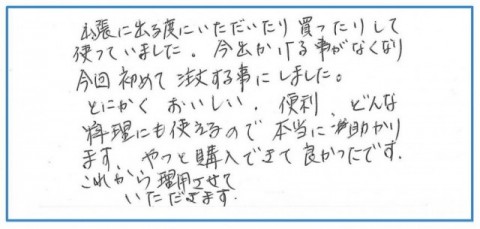 出張に出る度にいただいたり買ったりして
使っていました。今出かける事がなくなり
今回初めて注文する事にしました。
とにかくおいしい。便利、どんな
料理にも使えるので本当に助かり
ます。やっと購入できて良かったです。
これから愛用させて
いただきます。